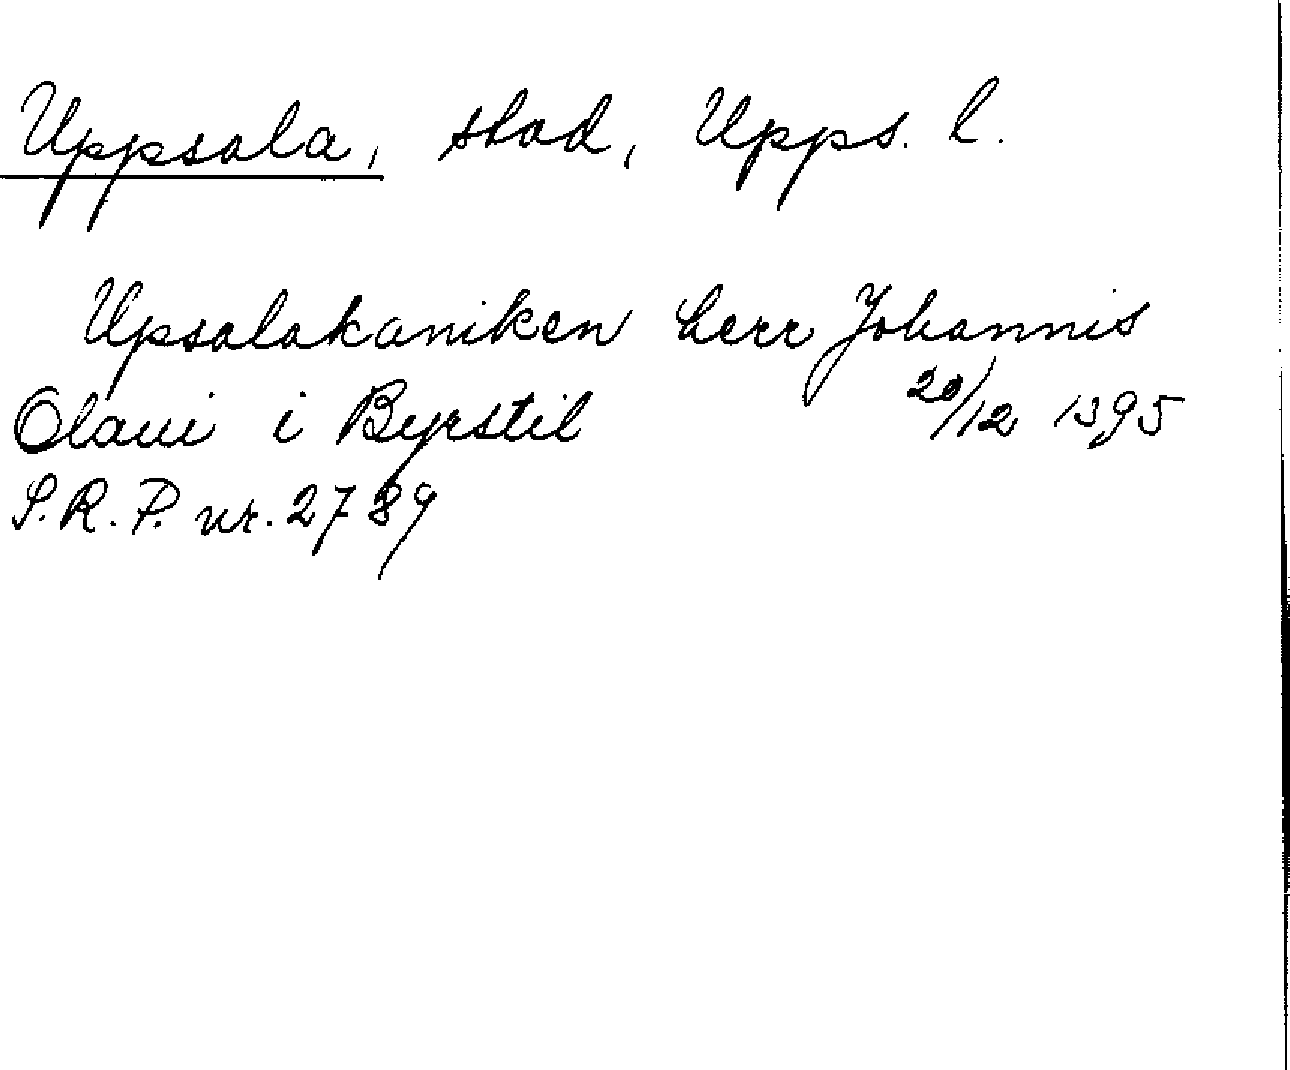 Uppsala, stad, Upps. l.
Upsalakaniken herr Johannis
Olaui i Byrstil 20/12 1395
S.R.P. nr. 2789